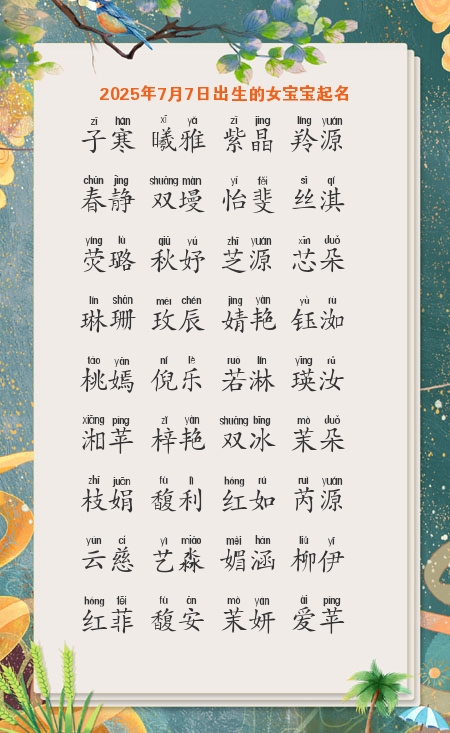 2025年7月7日出生的女宝宝起名
zǐ hán xī yǎ zǐ jīng líng yuán
子寒 曦雅 紫晶 羚源
chūn jìng shuāng màn yí fěi sī qí
春静 双墁 怡斐 丝淇
yíng lù qiū yú zhī yuán xīn duǒ
荧璐 秋妤 芝源 芯朵
lín shān méi chén jìng yàn yù rù
琳珊 玫辰 婧艳 钰洳
táo yān ní lè ruò lín yīng rǔ
桃嫣 倪乐 若淋 瑛汝
xiāng píng zǐ yàn shuāng bīng mò duǒ
湘苹 梓艳 双冰 茉朵
zhī juān fù lì hóng rú ruì yuán
枝娟 馥利 红如 芮源
yún cí yì miǎo mèi hán liǔ yī
云慈 艺淼 媚涵 柳伊
hóng fēi fù ān mò yán ài píng
红菲 馥安 茉妍 爱苹